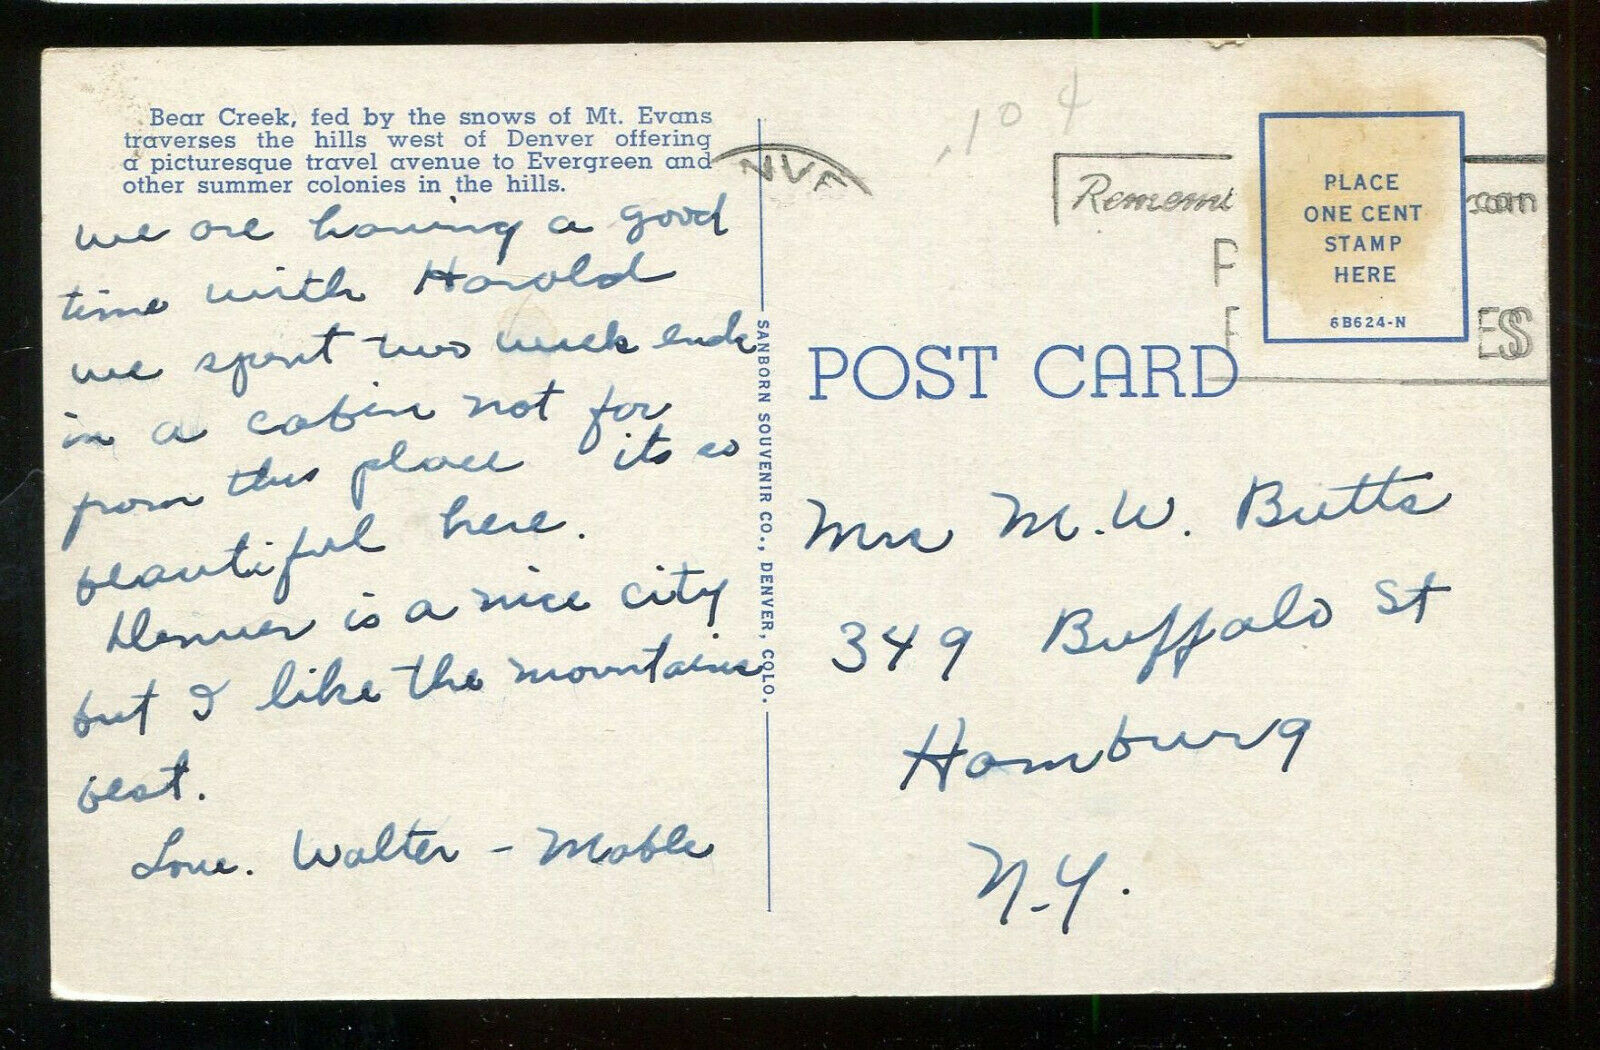 Bear Creek, fed by the snows of Mt. Evans
traverses the hills west of Denver offering
a picturesque travel avenue to Evergreen and
other summer colonies in the hills.
we are having a good
time with Harold
we spent two week ends
in a cabin not far
from this place its so
beautiful here.
Denver is a nice city
but I like the mountains
best.
Love. Walter - Mable
SANBORN SOUVENIR CO., DENVER, COLO.
NVE
.10 4
PLACE
ONE CENT
STAMP
HERE
6B624-N
POST CARD
Mrs M. W. Butts
349 Buffalo St
Hamburg
N.Y.